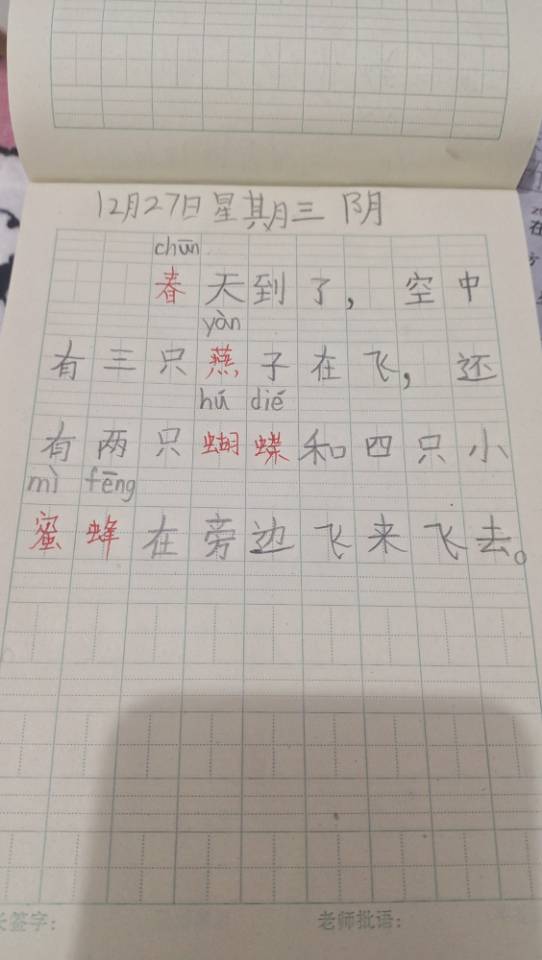 12月27日星期三 阴
chūn
春天到了，空中
yàn
有三只燕子在飞，还
hú dié
有两只蝴蝶和四只小
mì fēng
蜜蜂在旁边飞来飞去。
长签字： 老师批语：